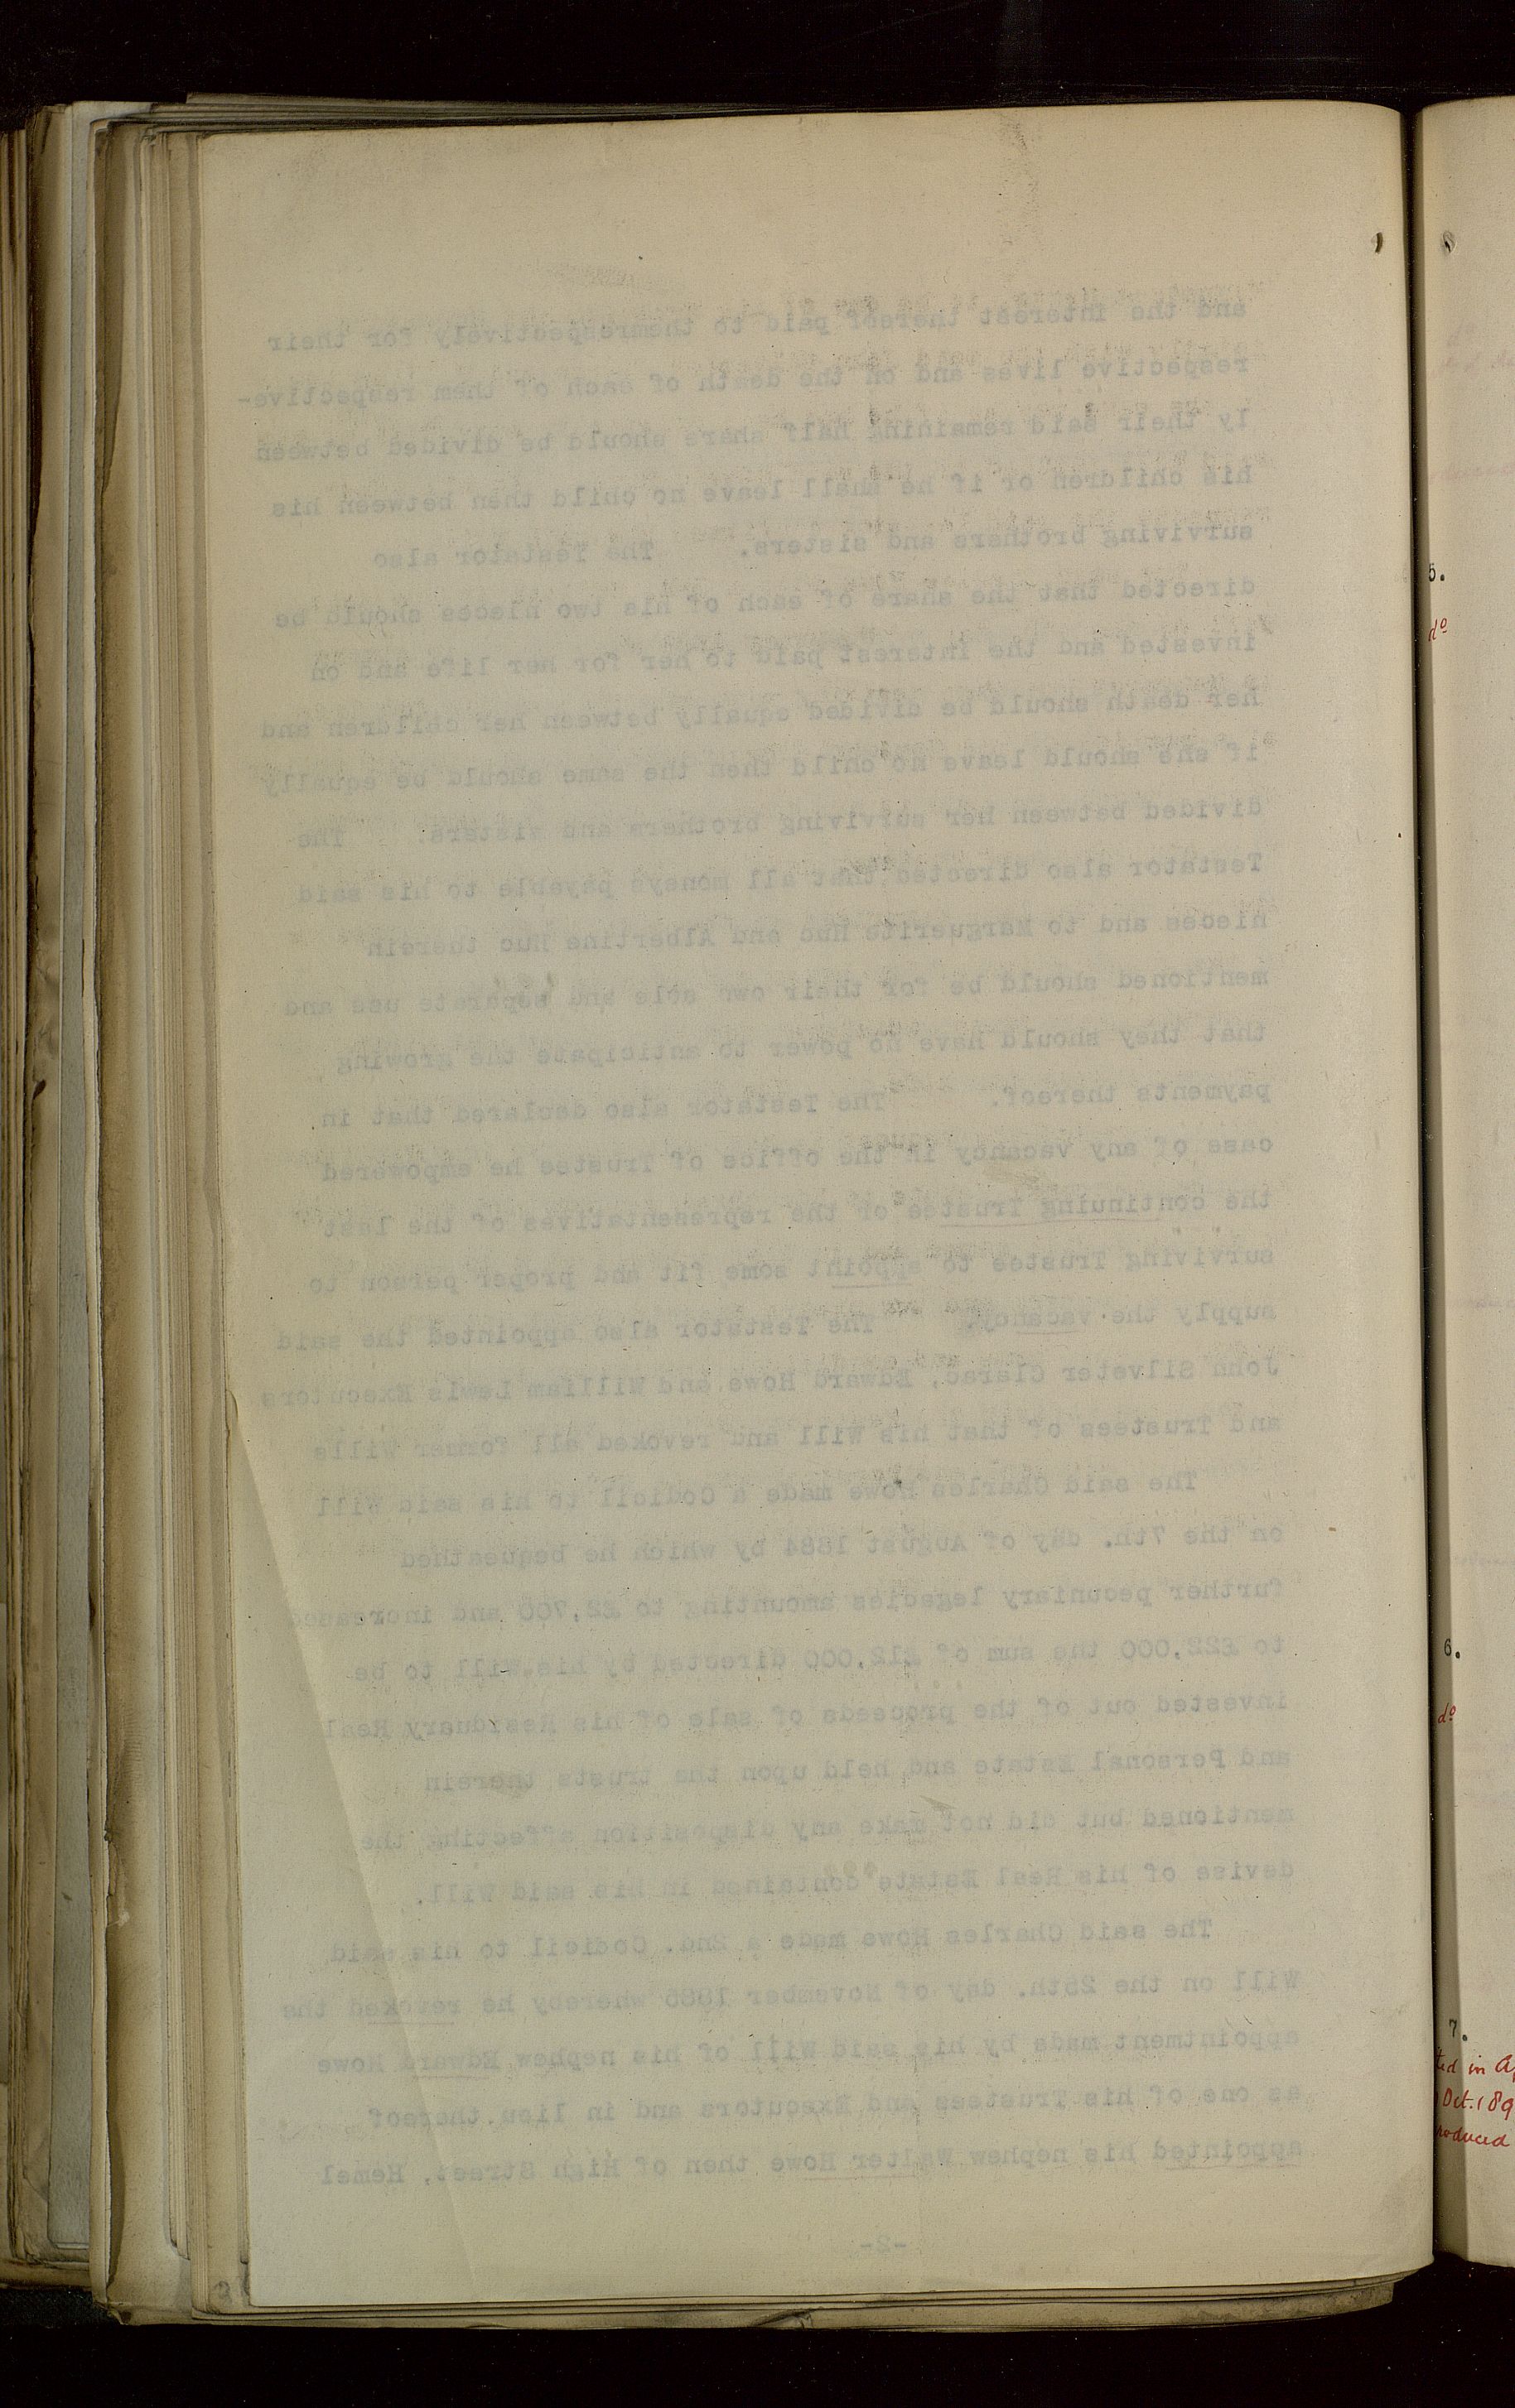 and the interest thereof paid to themrespectively for their
respective lives and on the death of each of them respective-
ly their said remaining half share should be divided between
his children or if he shall leave no child then between his
surviving brothers and sisters. The Testator also
directed that the share of each of his two nieces should be
invested and the interest paid to her for her life and on
her death should be divided equally between her children and
if she should leave no child then the same should be equally
divided between her surviving brothers and sisters. The
Testator also directed that all moneys payable to his said
nieces and to Marguerite Huc and Albertine Huc therein
mentioned should be for their own sole and separate use and
that they should have no power to anticipate the growing
payments thereof. The Testator also declared that in
case of any vacancy in the office of Trustee he empowered
the continuing Trustee or the representatives of the last
surviving Trustee to appoint some fit and proper person to
supply the vacancy. The Testator also appointed the said
John Silveter Clarac, Edward Howe and William Lewis Executors
and Trustees of that his Will and revoked all former Wills
The said Charles Howe made a Codicil to his said Will
on the 7th. day of August 1884 by which he bequeathed
further pecuniary legacies amounting to £2,700 and increased
to £22,000 the sum of £12,000 directed by his Will to be
invested out of the proceeds of sale of his Residuary Real
and Personal Estate and held upon the trusts therein
mentioned but did not make any disposition affecting the
devise of his Real Estate contained in his said Will.
The said Charles Howe made a 2nd. Codicil to his said
Will on the 25th. day of November 1886 whereby he revoked the
appointment made by his said Will of his nephew Edward Howe
as one of his Trustees and Executors and in lieu thereof
appointed his nephew Walter Howe then of High Street, Hemel
-2-
5.
do
6.
do
7.
in
Oct. 189